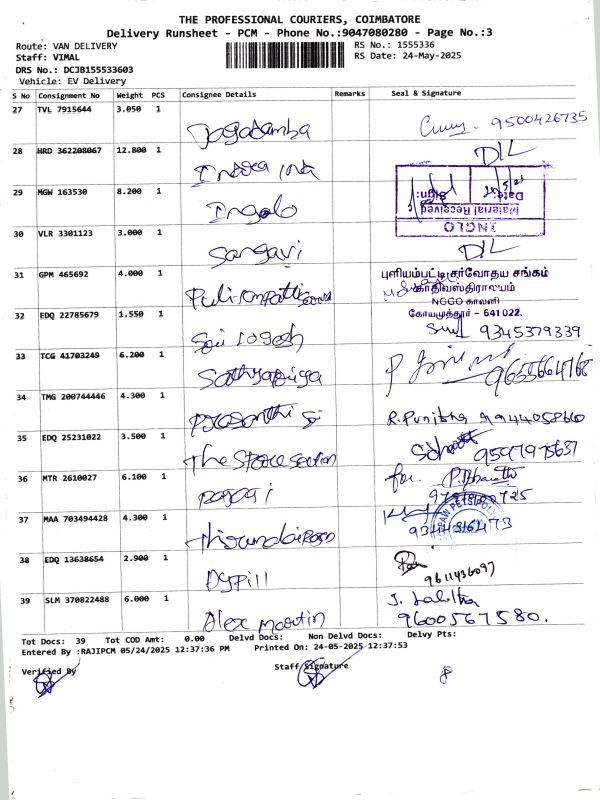 THE PROFESSIONAL COURIERS, COIMBATORE
Delivery Runsheet - PCM - Phone No.:9047080280 - Page No.:3
Route: VAN DELIVERY
RS No.: 1555336
Staff: VIMAL
RS Date: 24-May-2025
DRS No.: DCJB155533603
Vehicle: EV Delivery
S No Consignment No Weight PCS Consignee Details Remarks Seal & Signature
27 TVL 7915644 3.050 1 Jagadamba 9500426735
28 HRD 362208067 12.800 1 D/L
29 MGW 163530 8.200 1 InGlo
Material Received
Date:
Sign:
INGLO
30 VLR 3301123 3.000 1 Sangavi D/L
31 GPM 465692 4.000 1
புளியம்பட்டி சர்வோதய சங்கம்
காதிவஸ்திராலயம்
NGGO காலனி
கோயமுத்தூர் - 641022.
32 EDQ 22785679 1.550 1 9345379339
33 TCG 41703249 6.200 1 Sathyapriya
34 TMG 200744446 4.300 1 R. Punitha 9944058660
35 EDQ 25231022 3.500 1 The Space section 9597975637
36 MTR 2610027 6.100 1 for P. Bharathi
37 MAA 703494428 4.300 1
38 EDQ 13638654 2.900 1 9611436097
39 SLM 370822488 6.000 1 Alex Martin J. Lalitha
9600567580.
Tot Docs: 39 Tot COD Amt: 0.00 Delvd Docs: Non Delvd Docs: Delvy Pts:
Entered By :RAJIPCM 05/24/2025 12:37:36 PM Printed On: 24-05-2025 12:37:53
Verified By Staff Signature